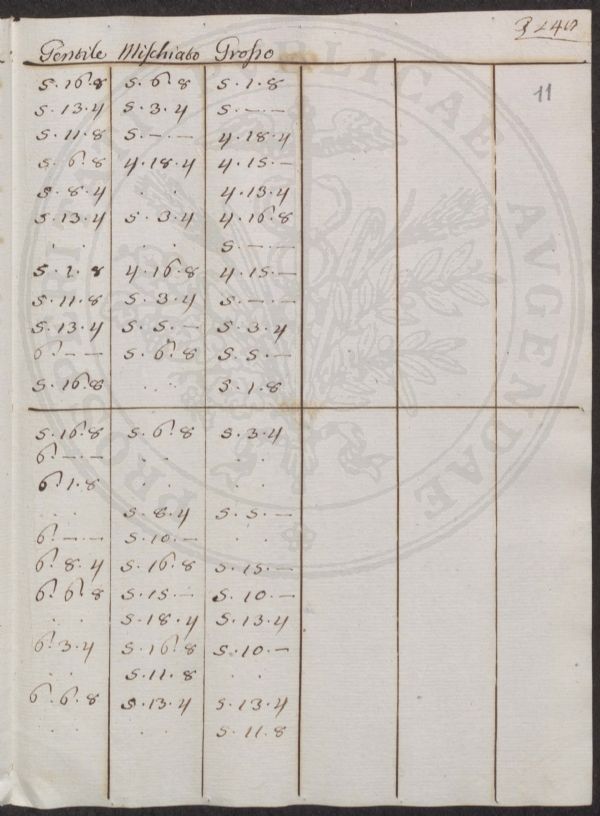 Gentile Mischiato Grosso
11
5.16.8 5.6.8 5.1.8
5.13.4 5.3.4 5.—.—
5.11.8 5.—.— 4.18.4
5.6.8 4.18.4 4.15.—
5.8.4 . . 4.13.4
5.13.4 5.3.4 4.16.8
. . . . 5.—.—
5.1.8 4.16.8 4.15.—
5.11.8 5.3.4 5.—.—
5.13.4 5.5.— 5.3.4
6.—.— 5.6.8 5.5.—
5.16.8 . . 5.1.8
5.16.8 5.6.8 5.3.4
6.—.— . . . .
6.1.8 . . . .
. . 5.8.4 5.5.—
6.—.— 5.10.— . .
6.8.4 5.16.8 5.15.—
6.6.8 5.15.— 5.10.—
. . 5.18.4 5.13.4
6.3.4 5.16.8 5.10.—
5.11.8 . .
6.6.8 5.13.4 5.13.4
. . . . 5.11.8
PROSPERITATI PUBLICAE AVGENDAE